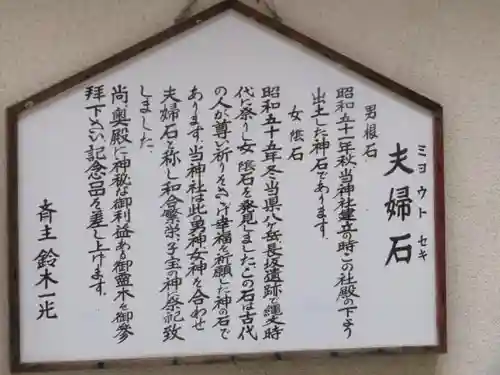 ミヨウト セキ
夫婦石
男根石
昭和五十年秋、当神社建立の時この社殿の下より
出土した神石であります。
女陰石
昭和五十五年冬、当県八ヶ岳長坂遺跡で縄文時
代に祭りし女陰石を発見しました、この石は古代
の人が尊い祈りをさゝげ幸福を祈願した神の石で
あります、当神社は此の男神女神を合わせ
夫婦石と称し和合繁栄、子宝の神と祭祀致
しました、
尚、奥殿に神秘な御利益ある御霊木を御参
拝下さい記念品を差し上げます、
斉主 鈴木一光